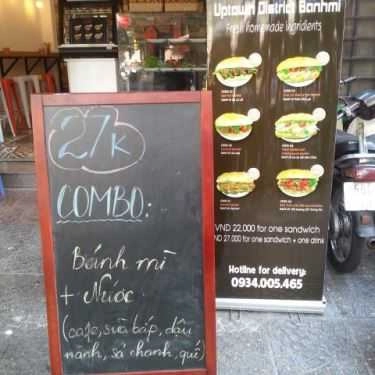 27K
COMBO:
Bánh mì
+ Nước
(cafe, sữa bắp, đậu
nành, sả chanh, quế)
Uptown District Banhmi
Fresh homemade ingridients
VND 22.000 for one sandwich
VND 27.000 for one sandwich + one drink
Hotline for delivery:
0934.005.465